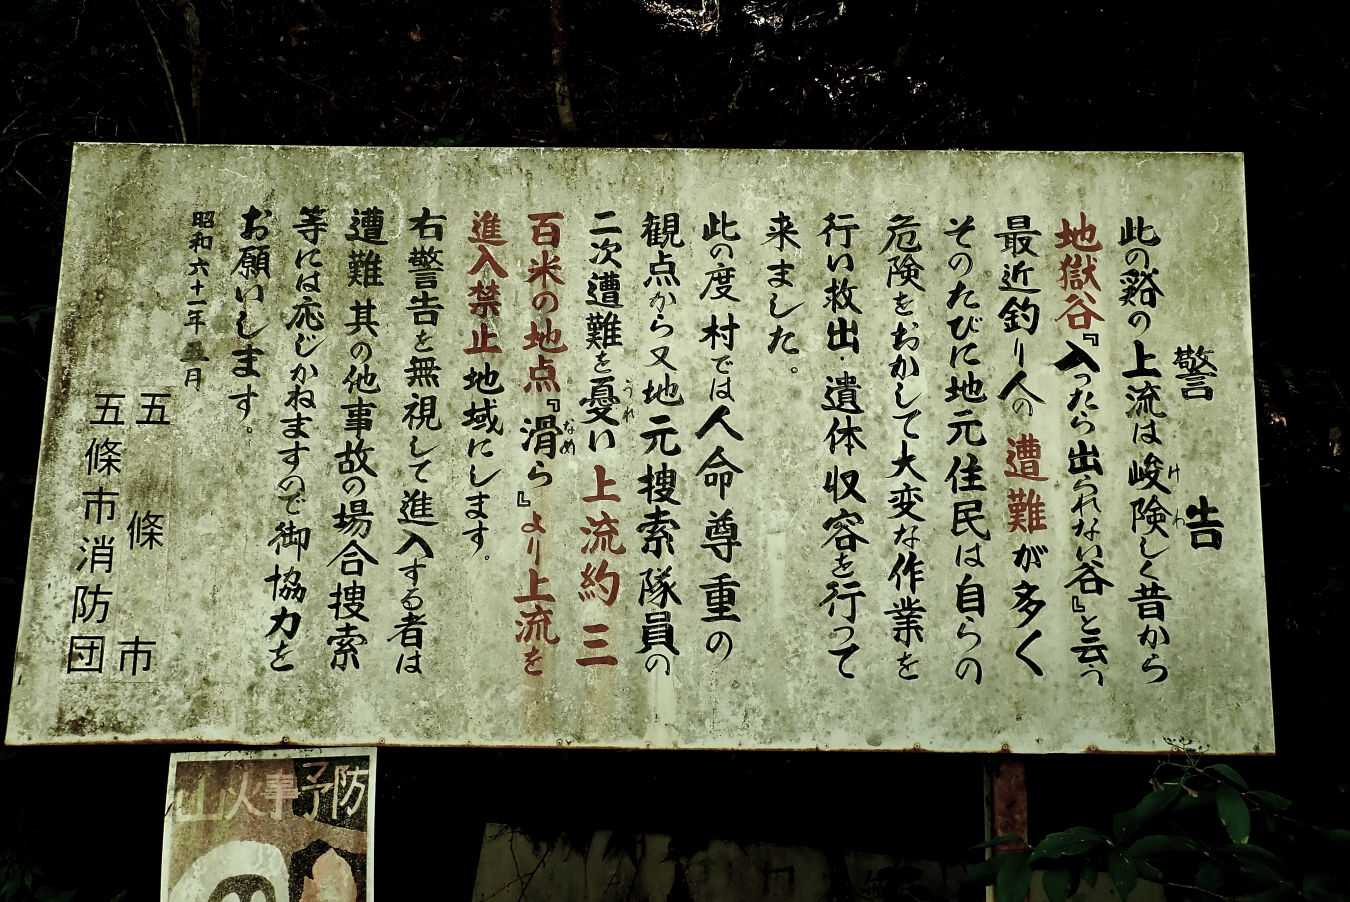 警告
此の谿の上流は峻険しく昔から
地獄谷『入ったら出られない谷』と云う
最近釣り人の遭難が多く
そのたびに地元住民は自らの
危険をおかして大変な作業を
行い救出・遺体収容を行って
来ました。
此の度村では人命尊重の
観点から又地元捜索隊員の
二次遭難を憂い上流約三
百米の地点『滑ら』より上流を
進入禁止地域にします。
右警告を無視して進入する者は
遭難其の他事故の場合捜索
等には応じかねますので御協力を
お願いします。
昭和六十一年五月
五條市
五條市消防団
けわ
うれ
なめ
山火事予防